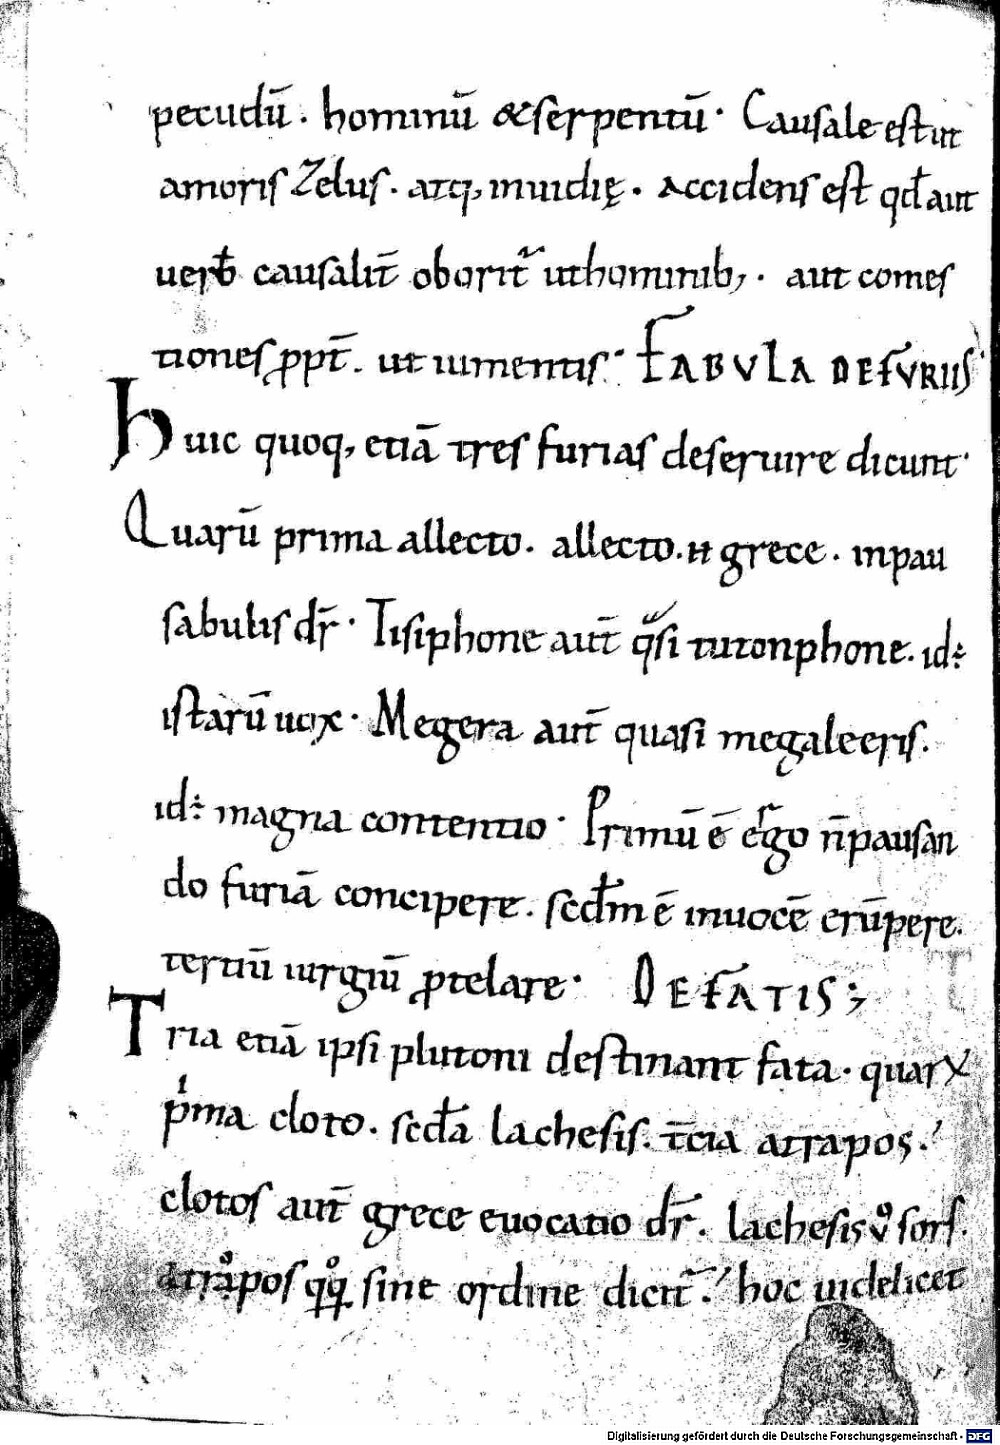 pecudū. hominū & serpentū. Causale est ut
amoris Zelus. atq; inuidię. accidens est qđ aut
uerƀ causalit̄ oborit᷑ ut hominib;. aut comes
tiones ꝓpt̄. ut iumentis. FABVLA DE FVRIIS
Huic quoq; etiā tres furias deseruire dicunt.
Quarū prima allecto. allecto. n̄ grece. inpau
sabulis dr̄. Tisiphone aut̄ qͣsi tutonphone. id÷
istarū uox. Megera aut̄ quasi megaleeris.
id÷ magna contentio. Primū ē ergo n̄ pausan
do furiā concipere. scđm ē inuocē erūpere.
tertiū iurgiū ꝓtelare. DE FATIS;
Tria etiā ipsi plutoni destinant fata. quarꝝ
pͥma cloto. scđa lachesis. t̄cia atrapos.
clotos aut̄ grece euocatio dr̄. lachesis ůͦ sors.
atrapos qͦq; sine ordine dicit᷑. hoc uidelicet
Digitalisierung gefördert durch die Deutsche Forschungsgemeinschaft - DFG